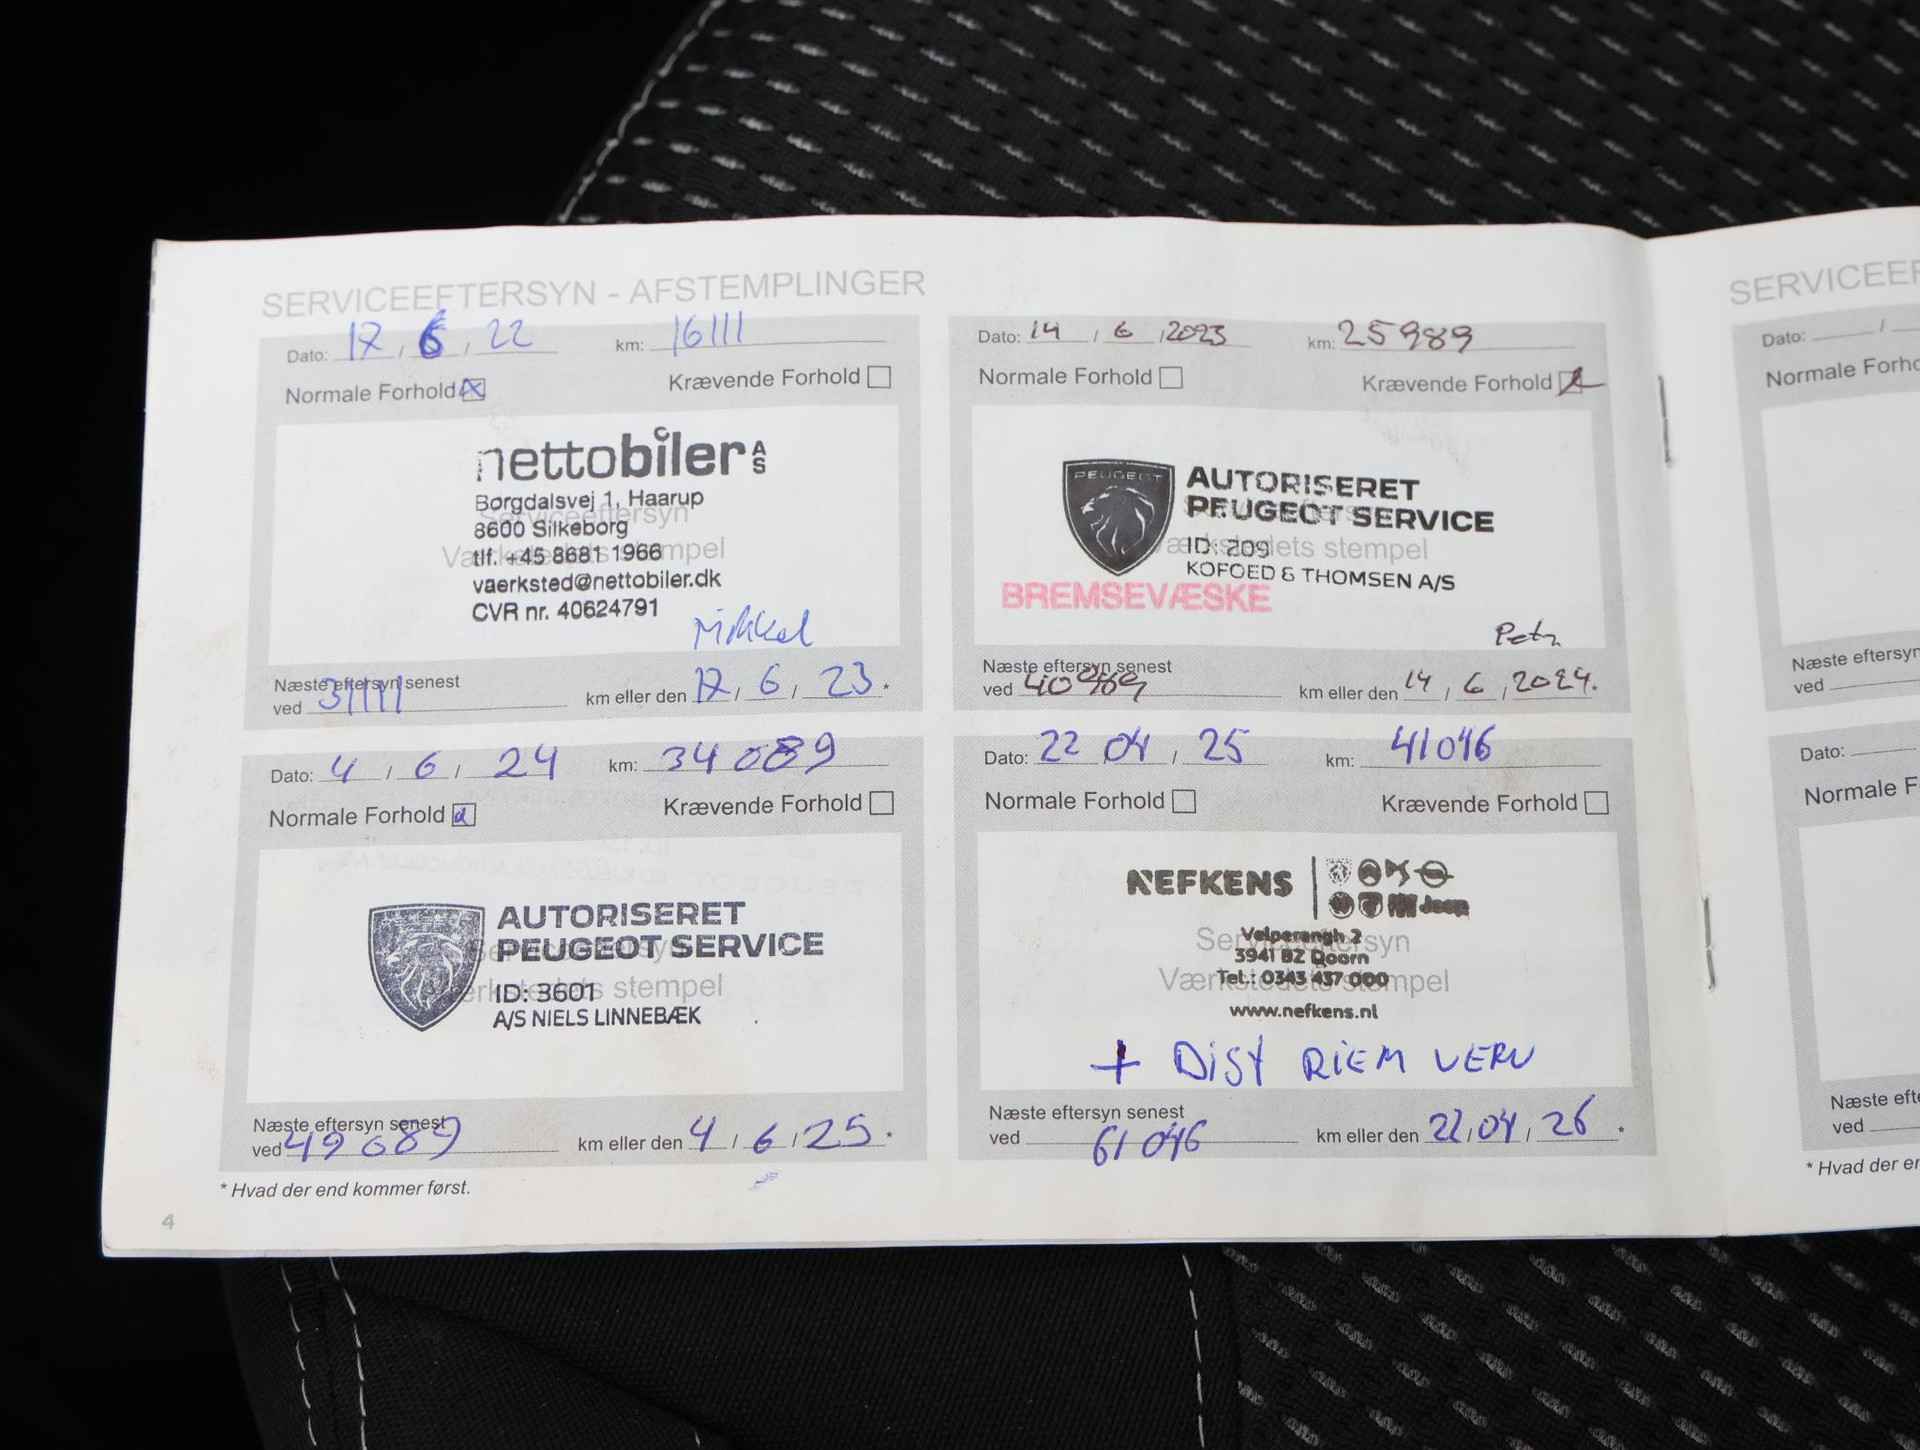 SERVICEEFTERSYN - AFSTEMPLINGER
Dato: 17 / 6 / 22 km: 16111
Normale Forhold Krævende Forhold
nettobiler A/S
Borgdalsvej 1, Haarup
Serviceeftersyn
8600 Silkeborg
Værkstedets stempel
tlf. +45 8681 1966
vaerksted@nettobiler.dk
CVR nr. 40624791
Mikkel
Næste eftersyn senest
ved 31111 km eller den 17 / 6 / 23 *
Dato: 14 / 6 / 2023 km: 25989
Normale Forhold Krævende Forhold
PEUGEOT
AUTORISERET
PEUGEOT SERVICE
Serviceeftersyn
ID: 209
Værkstedets stempel
KOFOED & THOMSEN A/S
BREMSEVÆSKE
Næste eftersyn senest
ved 40989 km eller den 14 / 6 / 2024.
Dato: 4 / 6 / 24 km: 34089
Normale Forhold Krævende Forhold
AUTORISERET
PEUGEOT SERVICE
Serviceeftersyn
ID: 3601
Værkstedets stempel
A/S NIELS LINNEBÆK
Næste eftersyn senest
ved 49089 km eller den 4 / 6 / 25 *
Dato: 22 04 / 25 km: 41046
Normale Forhold Krævende Forhold
NEFKENS
Jeep
Velperengh 2
Serviceeftersyn
3941 BZ Doorn
Værkstedets stempel
Tel.: 0343 437 000
www.nefkens.nl
+ DIST RIEM VERV
Næste eftersyn senest
ved 61046 km eller den 22 / 04 / 26 *
* Hvad der end kommer først.
4
SERVICEEF
Dato: /
Normale Forho
Næste eftersyn
ved
Dato:
Normale F
Næste efte
ved
* Hvad der er